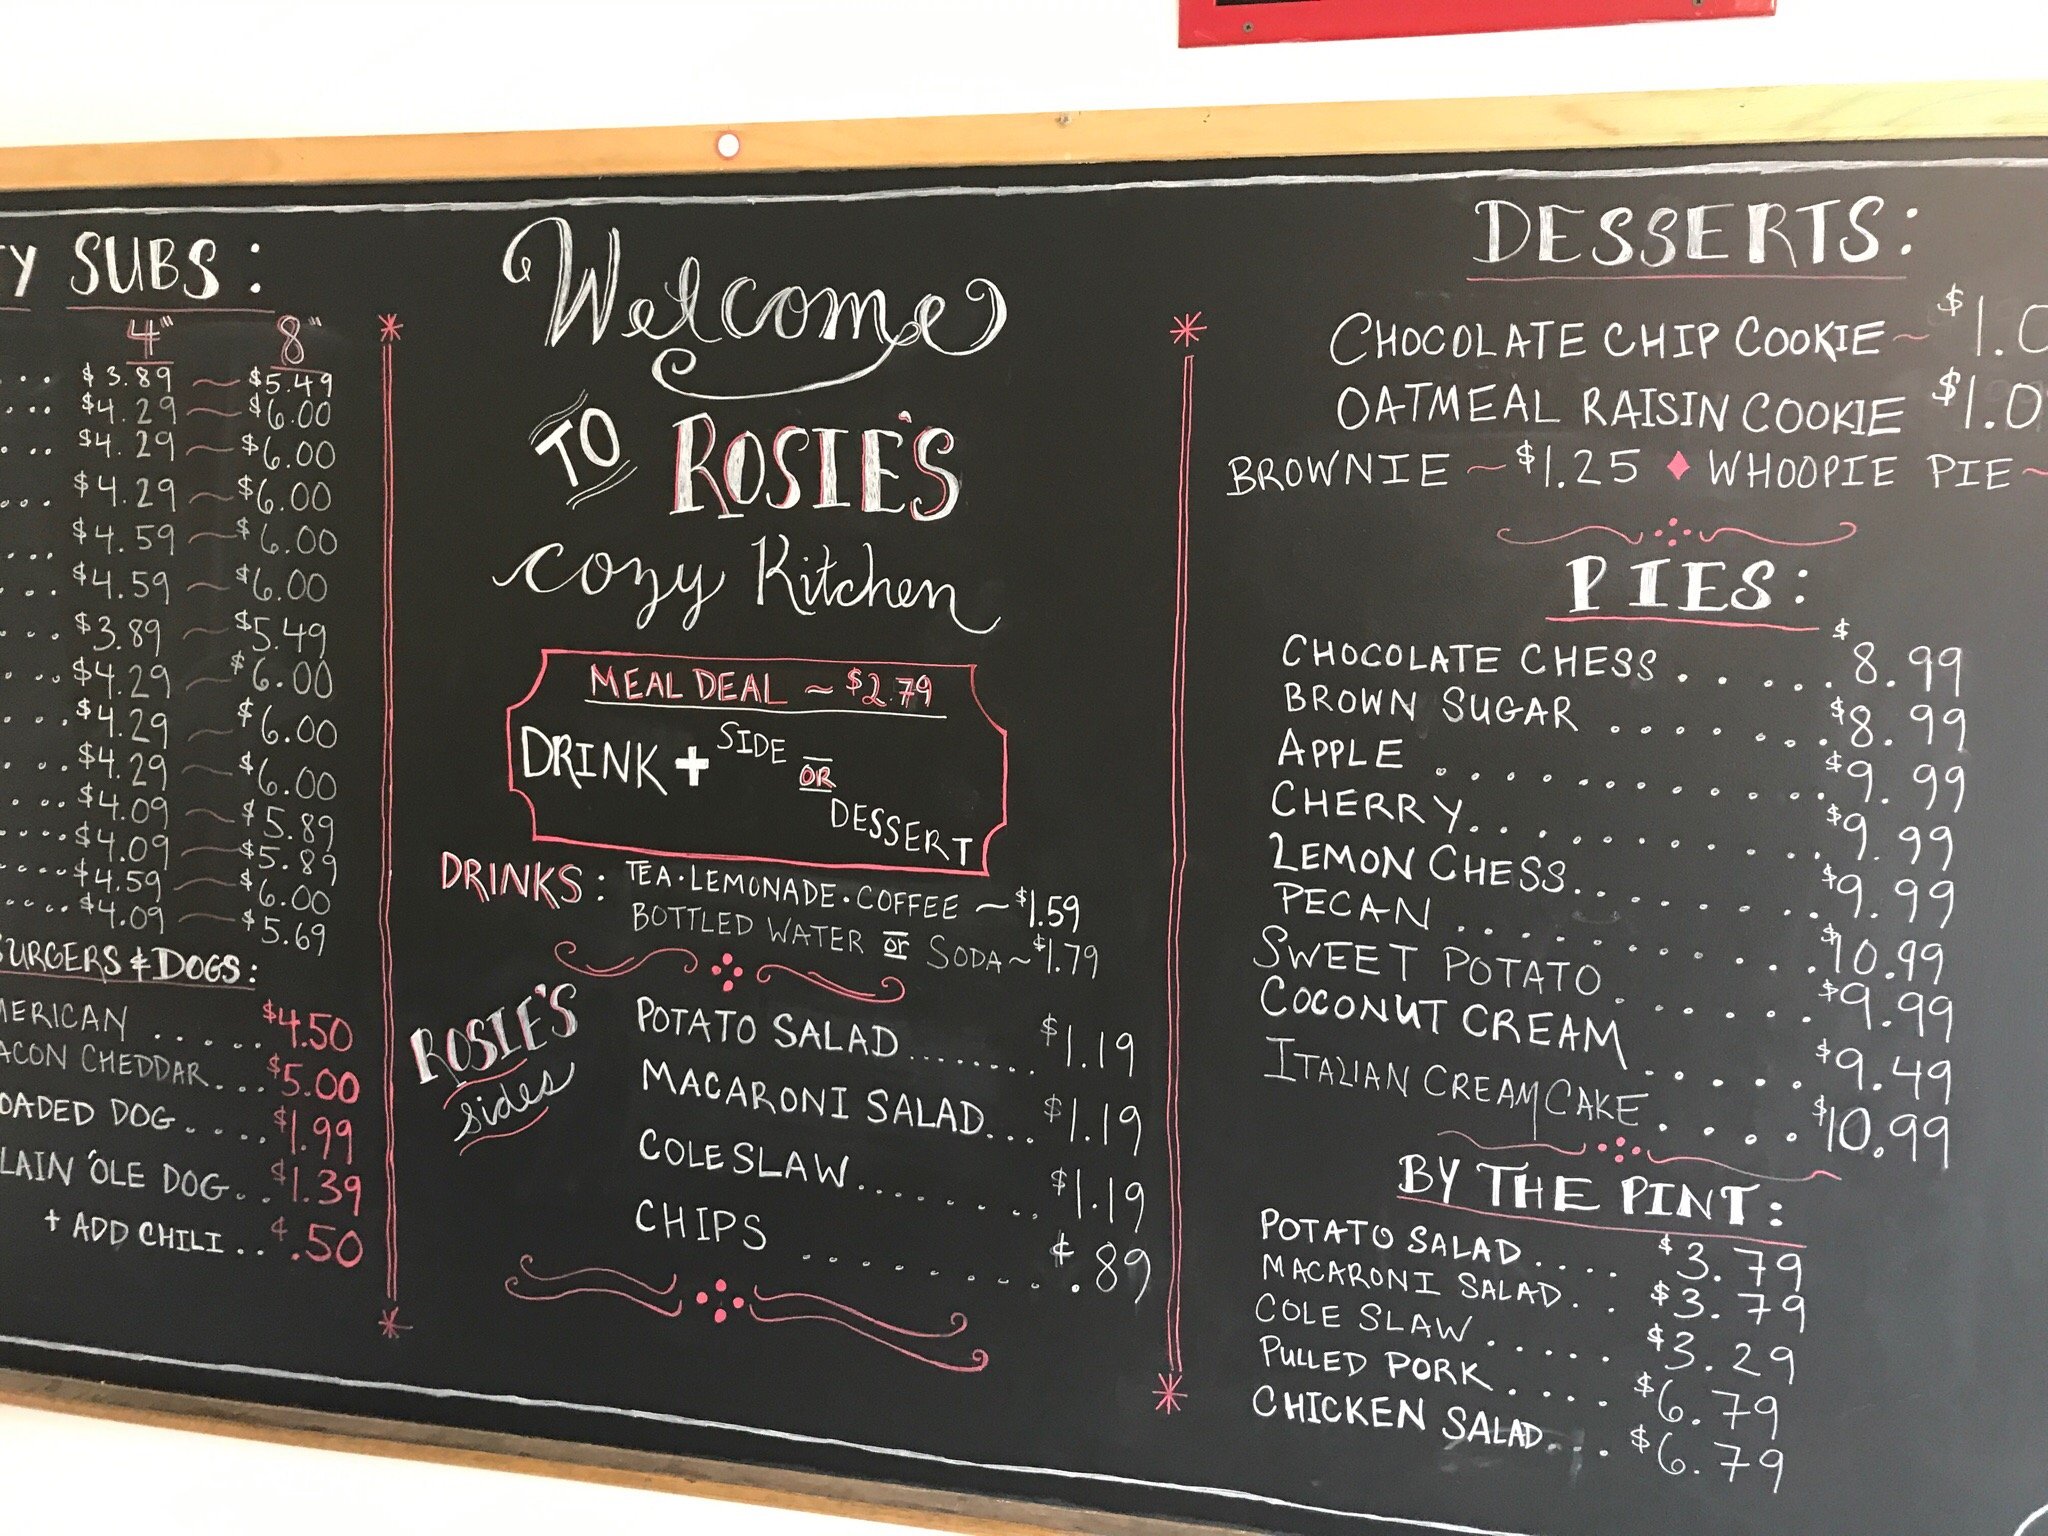 SUBS:
4" 8"
... $3.89 ~ $5.49
... $4.29 ~ $6.00
... $4.29 ~ $6.00
... $4.29 ~ $6.00
... $4.59 ~ $6.00
... $4.59 ~ $6.00
... $3.89 ~ $5.49
... $4.29 ~ $6.00
... $4.29 ~ $6.00
... $4.29 ~ $6.00
... $4.09 ~ $5.89
.... $4.09 ~ $5.89
.... $4.59 ~ $6.00
.... $4.09 ~ $5.69
BURGERS & DOGS:
MERICAN ..... $4.50
ACON CHEDDAR... $5.00
OADED DOG .... $1.99
LAIN 'OLE DOG... $1.39
+ ADD CHILI .. ¢.50
Welcome
TO ROSIE'S
Cozy Kitchen
MEAL DEAL ~ $2.79
DRINK + SIDE OR DESSERT
DRINKS: TEA · LEMONADE · COFFEE ~ $1.59
BOTTLED WATER or SODA ~ $1.79
ROSIE'S
sides
POTATO SALAD ....... $1.19
MACARONI SALAD... $1.19
COLE SLAW....... $1.19
CHIPS ........ ¢.89
DESSERTS:
CHOCOLATE CHIP COOKIE ~ $1.0
OATMEAL RAISIN COOKIE $1.0
BROWNIE ~ $1.25 ♦ WHOOPIE PIE ~
PIES:
CHOCOLATE CHESS ...... $8.99
BROWN SUGAR ....... $8.99
APPLE ........... $9.99
CHERRY.......... $9.99
LEMON CHESS........ $9.99
PECAN .......... $10.99
SWEET POTATO ...... $9.99
COCONUT CREAM ..... $9.49
ITALIAN CREAM CAKE .... $10.99
BY THE PINT:
POTATO SALAD .... $3.79
MACARONI SALAD .. $3.79
COLE SLAW ..... $3.29
PULLED PORK .... $6.79
CHICKEN SALAD... $6.79